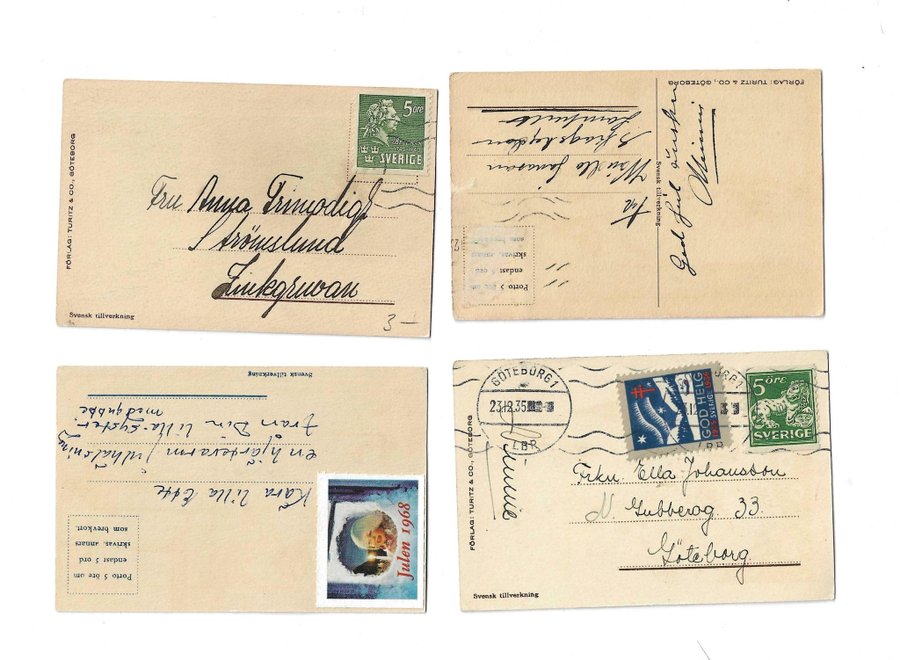 FÖRLAG: TURITZ & CO., GÖTEBORG
5 öre
SVERIGE
Fru Anna Trimodig
Strömslund
Zinkgruvan
3 —
Svensk tillverkning
FÖRLAG: TURITZ & CO., GÖTEBORG
God Jul önskar
Svensk tillverkning
Porto 5 öre om
endast 5 ord
skrivas, annars
som brevkort.
Svensk tillverkning
Kära lilla
en hjärtevarm julhälsning
från Din lilla syster
med gubbe
Porto 5 öre om
endast 5 ord
skrivas, annars
som brevkort.
Julen 1968
GÖTEBORG 1
23.12.35
LBR
GOD HELG
SVERIGE
5 ÖRE
SVERIGE
FÖRLAG: TURITZ & CO., GÖTEBORG
Frkn Ella Johansson
N. Gubberog. 33
Göteborg
Svensk tillverkning